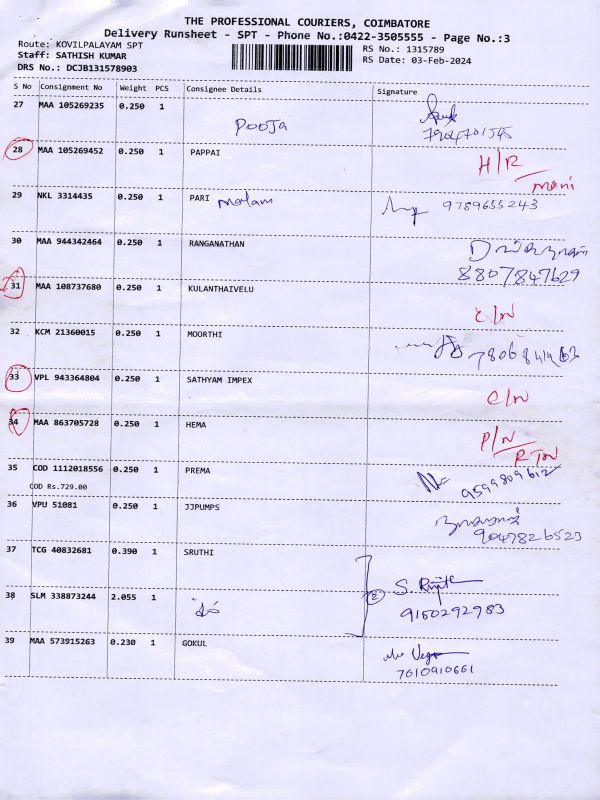 THE PROFESSIONAL COURIERS, COIMBATORE
Delivery Runsheet - SPT - Phone No.:0422-3505555 - Page No.:3
Route: KOVILPALAYAM SPT
RS No.: 1315789
Staff: SATHISH KUMAR
RS Date: 03-Feb-2024
DRS No.: DCJB131578903
S No Consignment No Weight PCS Consignee Details Signature
27 MAA 105269235 0.250 1 POOJA
7904701545
28 MAA 105269452 0.250 1 PAPPAI H/R
mani
29 NKL 3314435 0.250 1 PARI 9789655243
30 MAA 944342464 0.250 1 RANGANATHAN
8807847629
31 MAA 108737680 0.250 1 KULANTHAIVELU
C/N
32 KCM 21360015 0.250 1 MOORTHI
33 VPL 943364804 0.250 1 SATHYAM IMPEX
C/N
34 MAA 863705728 0.250 1 HEMA P/N
RTN
35 COD 1112018556 0.250 1 PREMA 9599809612
COD Rs.729.00
36 VPU 51081 0.250 1 JJPUMPS
9047826523
37 TCG 40832681 0.390 1 SRUTHI
38 SLM 338873244 2.055 1 2
9150292983
39 MAA 573915263 0.230 1 GOKUL
7010910661